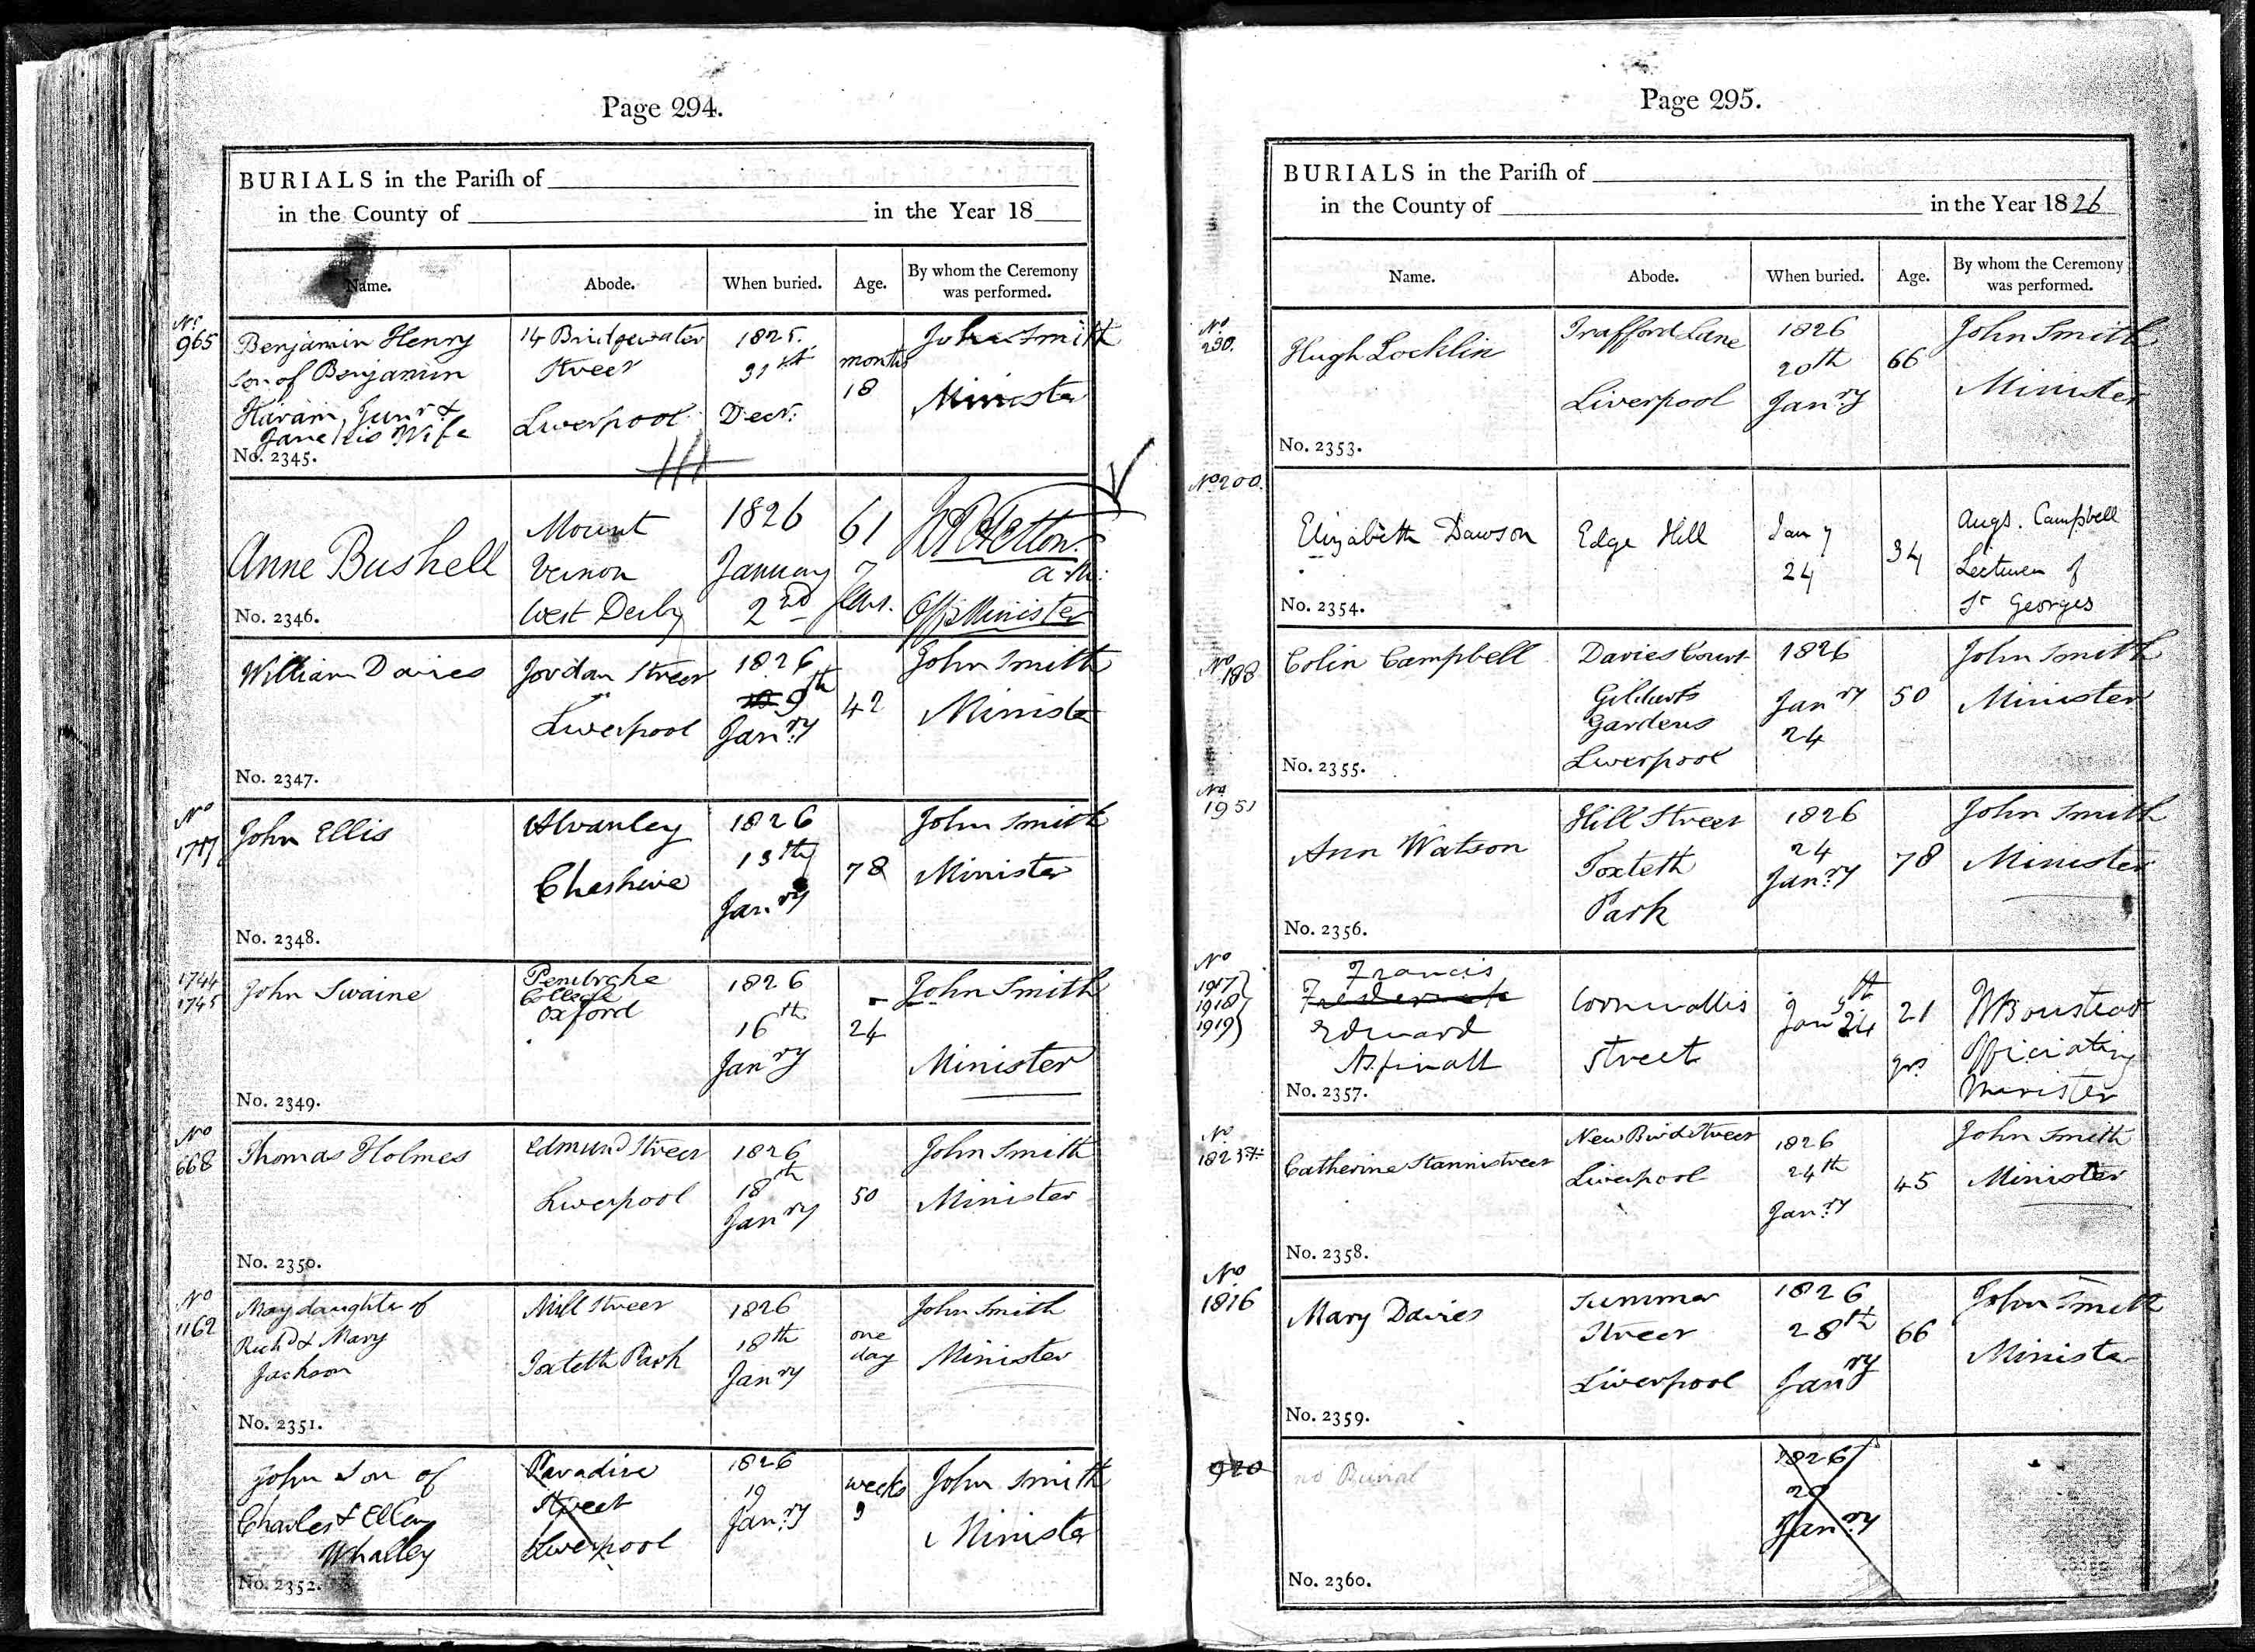 Page 294.
BURIALS in the Parish of
in the County of in the Year 18
Name. Abode. When buried. Age. By whom the Ceremony was performed.
No.
965
Benjamin Henry
son of Benjamin
Junr &
Jane his Wife
No. 2345.
14 Bridgewater
Street
Liverpool
1825.
31st
Decr.
months
18
John Smith
Minister
Anne Bushell
No. 2346.
Mount
Vernon
West Derby
1826
January
2nd
61
years.
A.M.
Offg Minister
William Davies
No. 2347.
Jordan Street
Liverpool
1826
9th
Janry
42
John Smith
Minister
No
John Ellis
No. 2348.
Alvanley
Cheshire
1826
13th
Janry
78
John Smith
Minister
1744
1745
John Swaine
No. 2349.
Pembroke
College
Oxford
1826
16th
Janry
24
John Smith
Minister
No
668
Thomas Holmes
No. 2350.
Edmund Street
Liverpool
1826
18th
Janry
50
John Smith
Minister
No
1162
May daughter of
Richd & Mary
Jackson
No. 2351.
Mill Street
Toxteth Park
1826
18th
Janry
one
day
John Smith
Minister
John Son of
Charles & Ellen
Whalley
No. 2352.
Paradise
Street
Liverpool
1826
19
Janry
weeks
9
John Smith
Minister
Page 295.
BURIALS in the Parish of
in the County of in the Year 1826
Name. Abode. When buried. Age. By whom the Ceremony was performed.
No
230.
Hugh Locklin
No. 2353.
Trafford Lane
Liverpool
1826
20th
Janry
66
John Smith
Minister
No 200.
Elizabeth Dawson
No. 2354.
Edge Hill
Jany
24
34
Augs. Campbell
Lecturer of
St Georges
No
188
Colin Campbell
No. 2355.
Davies Court
Gildarts
Gardens
Liverpool
1826
Janry
24
50
John Smith
Minister
No
1951
Ann Watson
No. 2356.
Hill Street
Toxteth
Park
1826
24
Janry
78
John Smith
Minister
No
1917
1918
1919
Francis
Frederick
Edward
Aspinall
No. 2357.
Cornwallis
Street
Jany 24
21
yrs
Officiating
Minister
No
Catherine Stannistreet
No. 2358.
New Bird Street
Liverpool
1826
24th
Janry
45
John Smith
Minister
No
1816
Mary Davies
No. 2359.
Summer
Street
Liverpool
1826
28th
Janry
66
John Smith
Minister
920
no Burial
No. 2360.
1826
Janry